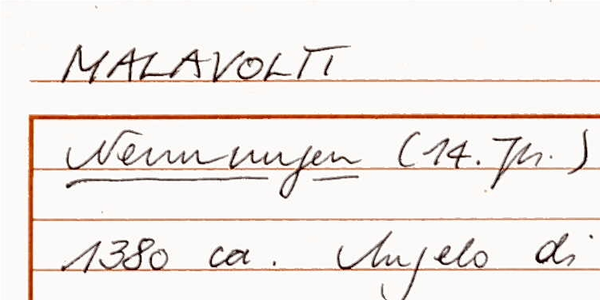 MALAVOLTI
Nennungen (14. Jh.)
1380 ca. Angelo di